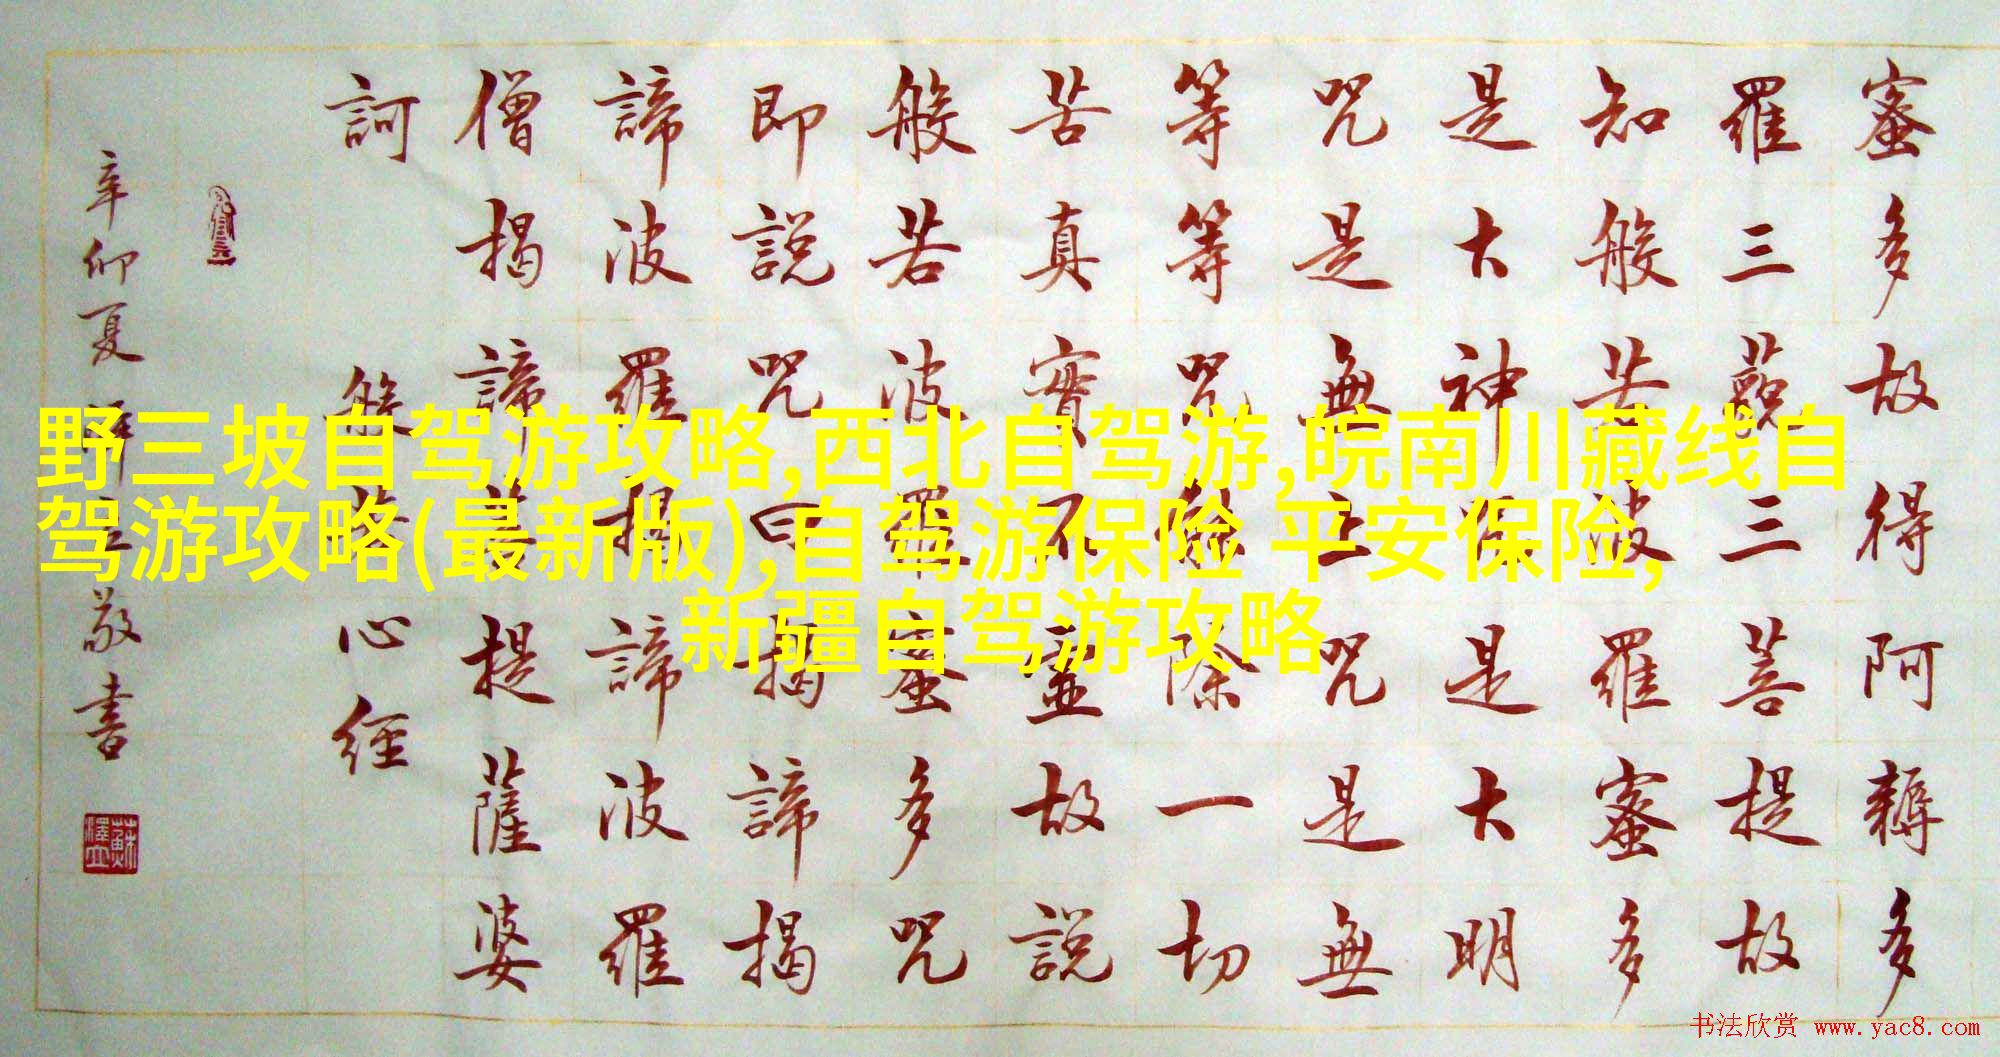 蜜多故得阿耨多
羅三藐三菩提故
知般若波羅蜜多
是大神咒是大明
咒是無上咒是無
等等咒能除一切
苦真實不虛故說
般若波羅蜜多咒
即說咒曰揭諦揭
諦波羅揭諦波羅
僧揭諦菩提薩婆
訶 般若心經
辛卯夏 敬書
野三坡自驾游攻略,西北自驾游,皖南川藏线自
驾游攻略(最新版),自驾游保险 平安保险,
新疆自驾游攻略
书法欣赏 www.yac8.com